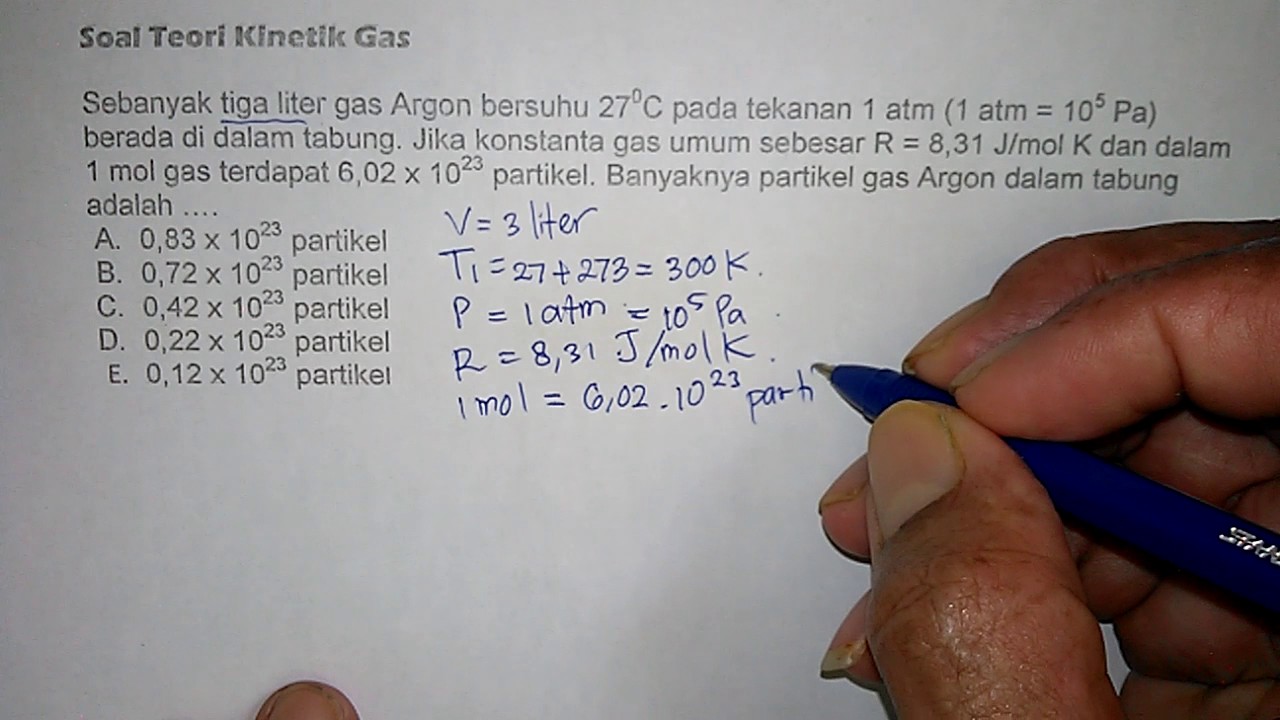 Soal Teori Kinetik Gas
Sebanyak tiga liter gas Argon bersuhu 27⁰C pada tekanan 1 atm (1 atm = 10⁵ Pa)
berada di dalam tabung. Jika konstanta gas umum sebesar R = 8,31 J/mol K dan dalam
1 mol gas terdapat 6,02 x 10²³ partikel. Banyaknya partikel gas Argon dalam tabung
adalah ....
A. 0,83 x 10²³ partikel
B. 0,72 x 10²³ partikel
C. 0,42 x 10²³ partikel
D. 0,22 x 10²³ partikel
E. 0,12 x 10²³ partikel
V = 3 liter
T₁ = 27 + 273 = 300 K.
P = 1 atm = 10⁵ Pa
R = 8,31 J/mol K.
1 mol = 6,02 . 10²³ parti